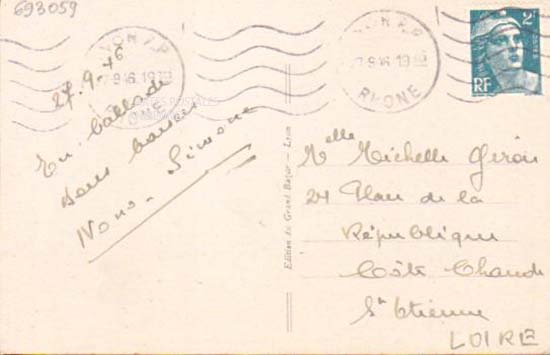 693059
LYON R.P
27.9.46 19
RHONE
LYON R.P
27.9.46 19
RHONE
2F
RF
27.9.46
En ballade
Bons baisers
Nono - Simone
Edition du Grand Bazar — Lyon
Melle Michelle Giron
24 Place de la
République
Côte Chaude
St Etienne
LOIRE